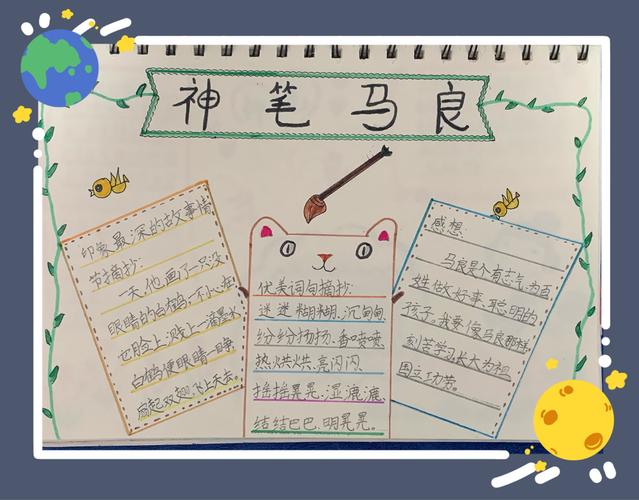 神笔马良
印象最深的故事情
节摘抄:
一天,他画了一只没
眼睛的白鹤,一不小心,在
它脸上溅上一滴墨水,
白鹤便眼睛一睁,
扇起双翅,飞上天去。
优美词句摘抄:
迷迷糊糊、沉甸甸
纷纷扬扬、香喷喷
热烘烘、亮闪闪、
摇摇晃晃、湿漉漉、
结结巴巴、明晃晃。
感想:
马良是个有志气,为百
姓做好事、聪明的
孩子。我要像马良那样
刻苦学习,长大为祖
国立功劳。